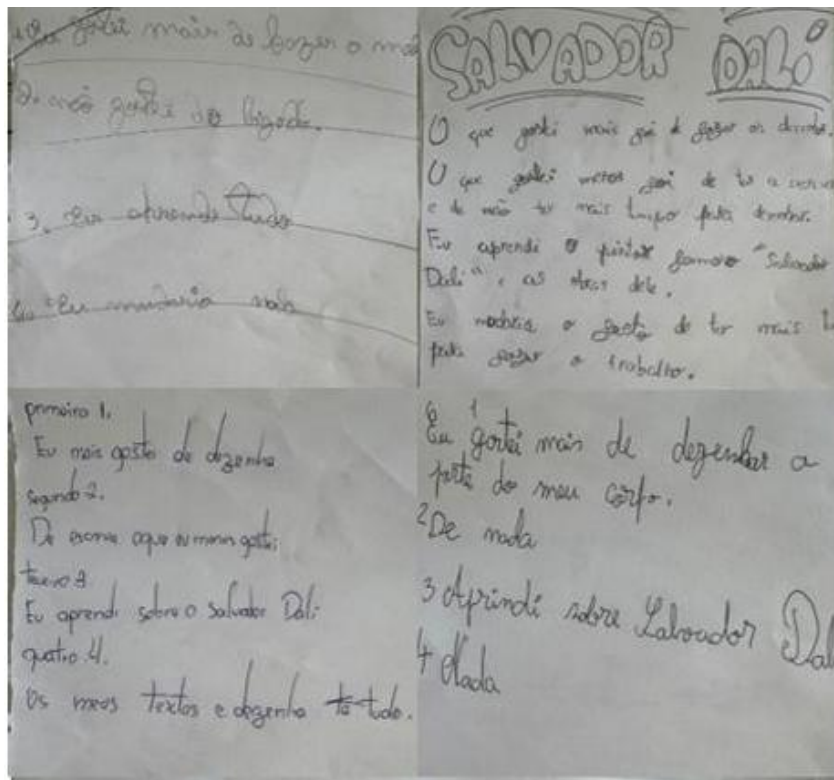 gostei mais de fazer o
2. não gostei do bigode.
3. Eu aprende tudo
4. Eu mudaria nais
SALVADOR DALÍ
O que gostei mais foi de fazer os
O que gostei menos foi de ter a
e de não ter mais tempo para
Eu aprendi o pintor famoso "Salvador
Dali" e as obras dele.
Eu o de ter mais
para fazer o trabalho.
primeiro 1.
Eu mais gostei de dezenha
segundo 2.
De escreve oque eu menos gostei
3
Eu aprendi sobre o Salvador Dali
quatro 4.
Os meus textos e dezenha tudo.
1
Eu gostei mais de dezenhar a
parte do meu corpo.
2 De nada
3 Aprindi sobre Salvador Dal
4 Nada